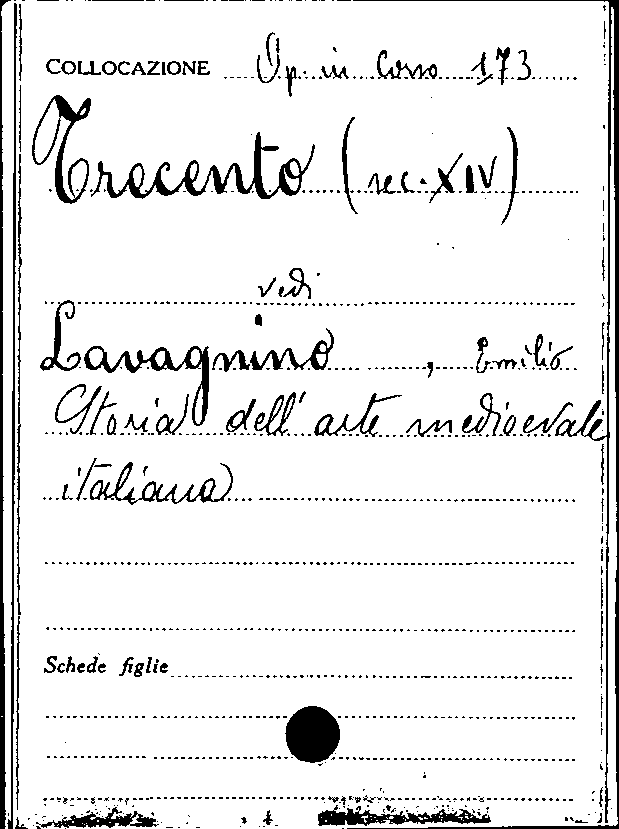 COLLOCAZIONE Op. in Corso 173
Trecento (sec. XIV)
vedi
Lavagnino, Emilio
Storia dell' arte medioevale
italiana
Schede figlie